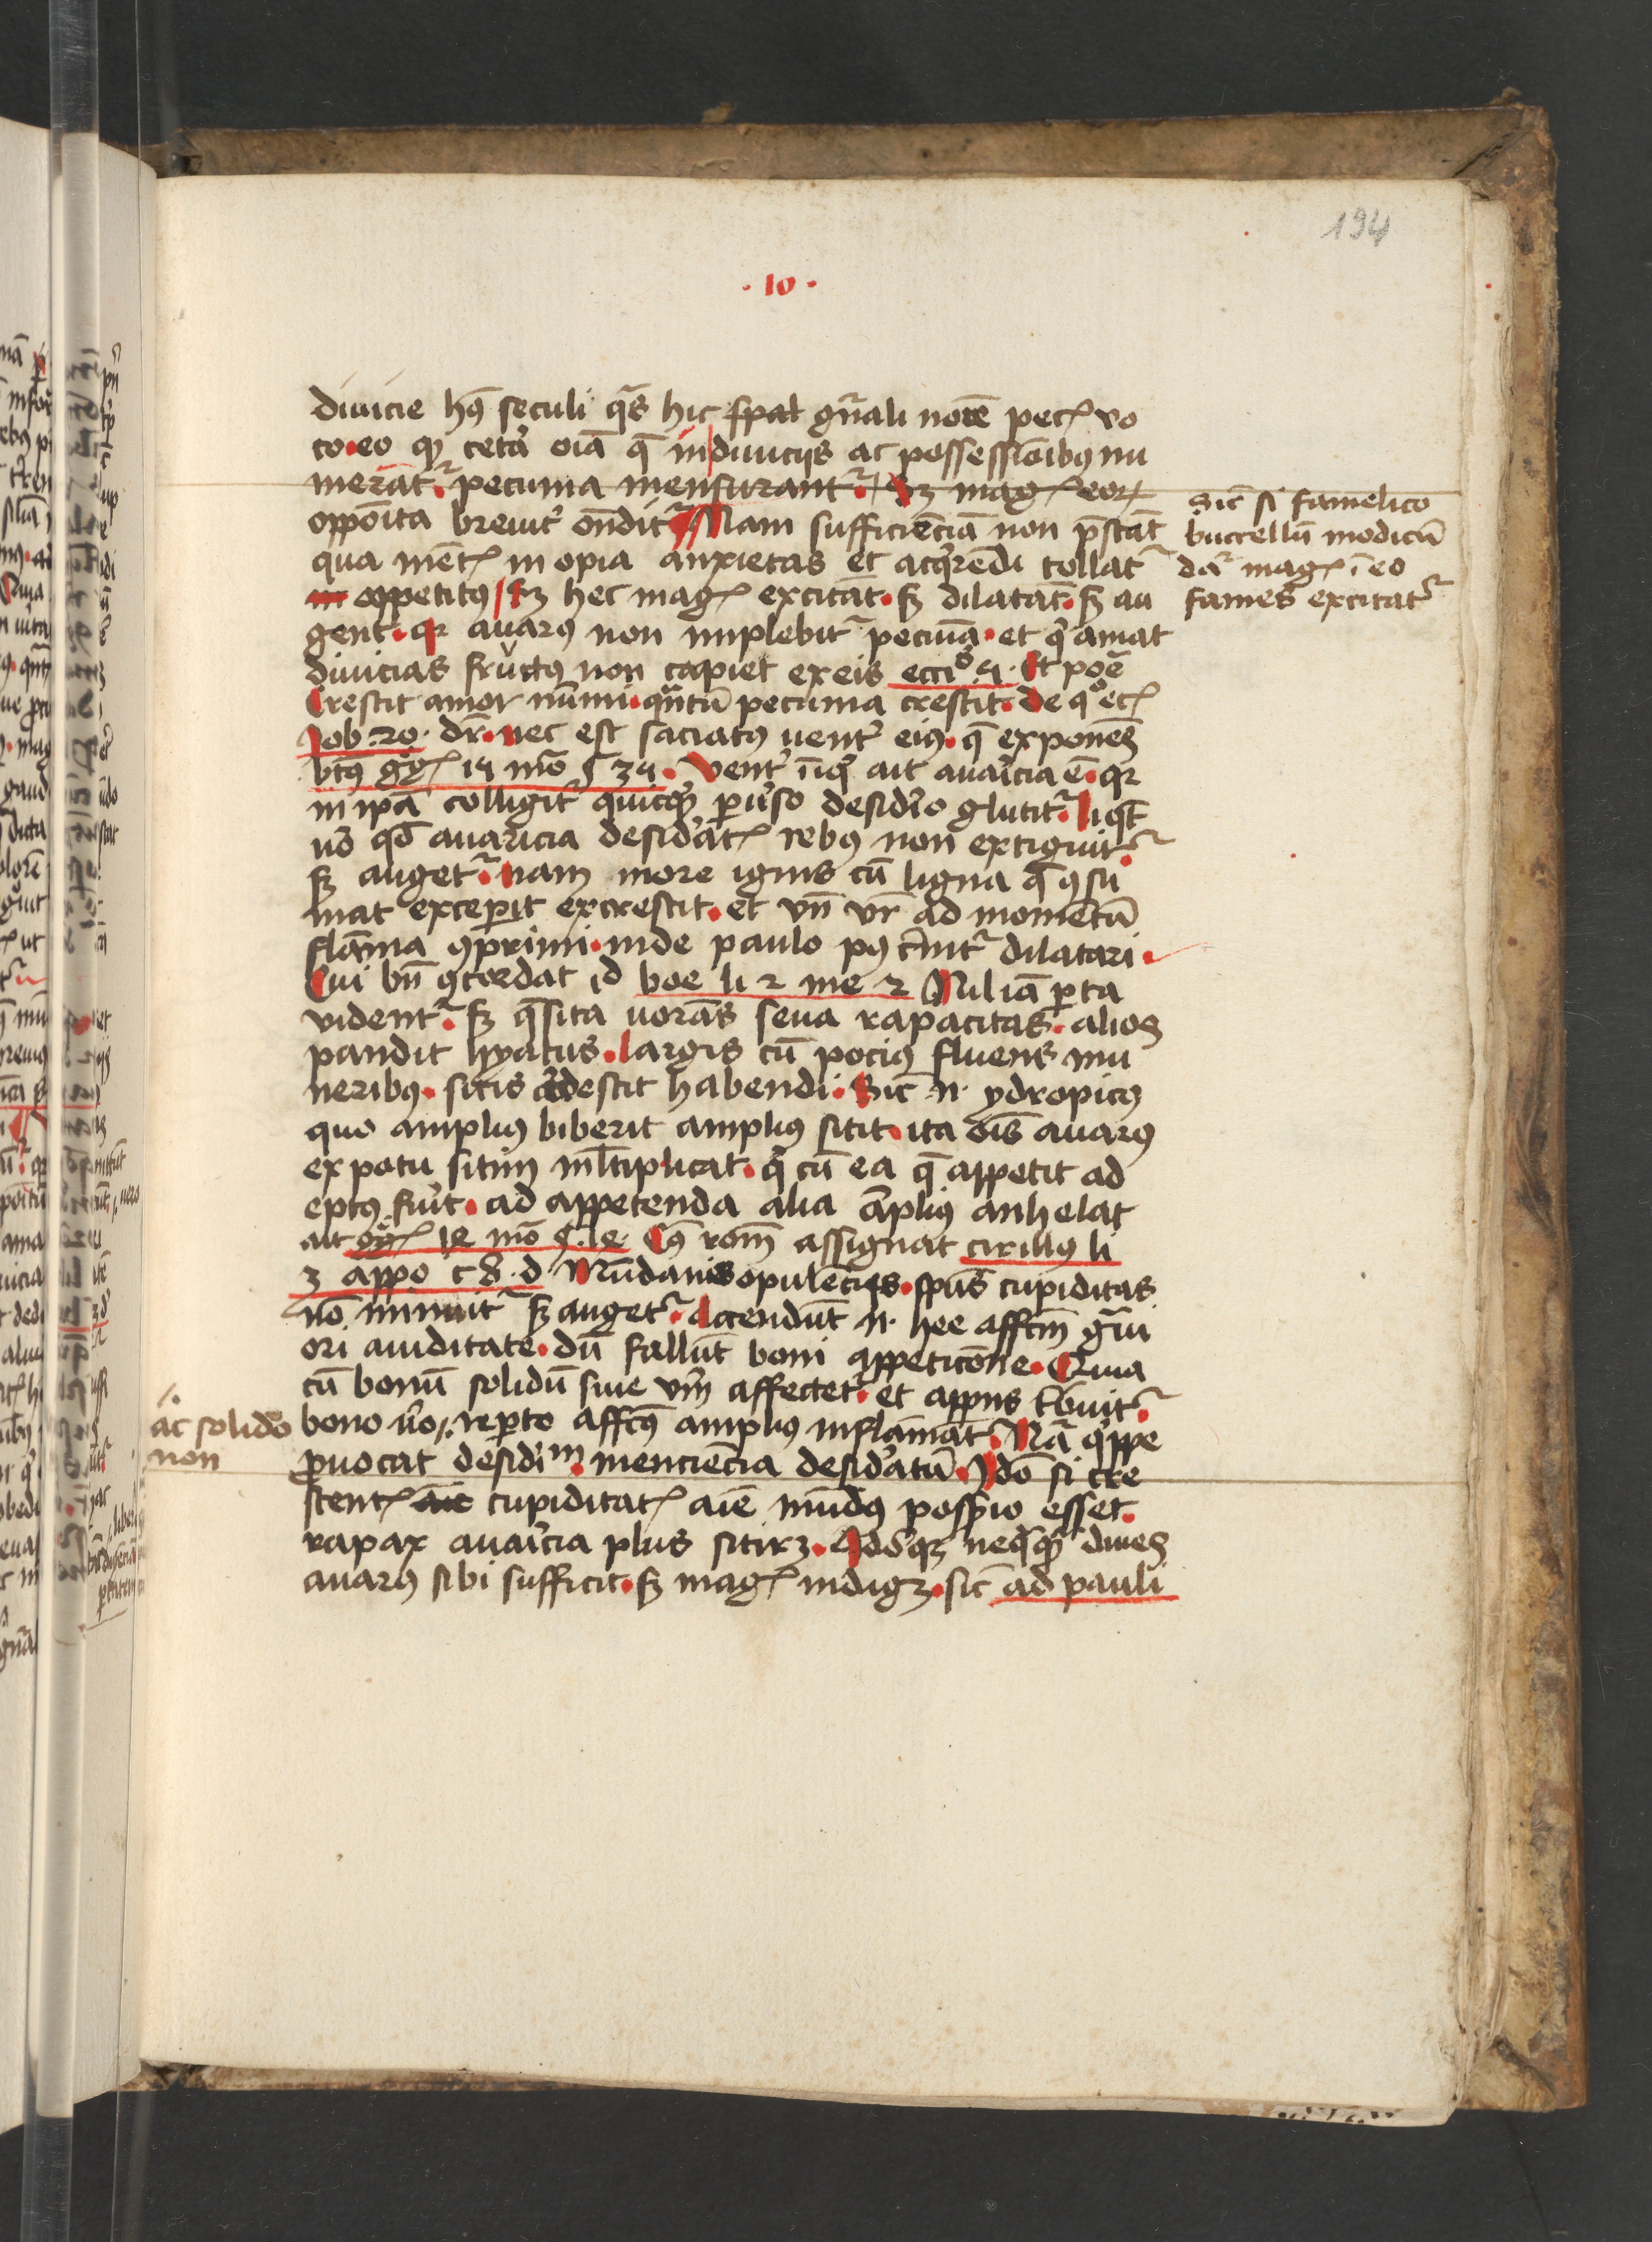 194
· 10 ·
diuicie hꝰ seculi q̄s hic sp̄al gn̄ali noīe pec͛ vo
to · eo ꝙ cetᷓa oīa q̄ in diuicijs ac possessionibꝫ nu
merāt᷑ · pecunia mensurant᷑ · Sꝫ mag͛ eoꝝ
oppoīta breuit᷑ on̄dit᷑ Nam sufficiēciā non p̄stāt
qua ment͛ in opia anxietas et acq̇rēdi tollat᷑
appetitꝰ / sꝫ hec mag͛ excitāt · sꝫ dilatāt · sꝫ au
gent · qꝛ auarꝰ non implebit᷑ pecūa · et q̇ amat
diuicias fructꝰ non capiet ex eis ecc̄i 5 · Et poēa
Crescit amor nūmi · qn̄tū pecunia crescit · de qͦ ec͛
Job · 20 · dr̄ · nec est saciatꝰ uent᷑ eiꝰ · q̄ exponens
btꝰ gg͛ 15 mō ꝯ 35 · Vent᷑ īiq̇ ait auaricia ē · qꝛ
in ipā colligit᷑ quicq̇d puˀso desidˀio glutit᷑ · liqꝫ
uō qd̄ auaricia desidˀat͛ rebꝰ non extiguit᷑ ·
sꝫ auget᷑ · nam more ignis cū ligna q̄ ꝯsu
mat exceperit excrescit · et vn̄ vr̄ ad momētū
flāma ꝯprimi · inde paulo pꝰ cˀnit᷑ dilatari ·
Cui bn̄ ꝯcordat id boe li 2 me 2 Nil iā parta
vident᷑ · sꝫ q̄sita uorās seua rapacitas · alios
pandit hyatus · largis cū pociꝰ fluens mu
neribꝫ · sitis ardescit habendi · Sic n̄ · ydropicꝰ
quo ampliꝰ biberit ampliꝰ sitit · ita oīs auarꝰ
ex potu sitim ml̄tiplicat · q̇ cū ea q̄ appetit ad
eptꝰ fuˀit · ad appetenda alia āpliꝰ anhelat
ait gg͛ 14 mō ꝯ · 14 · Cꝰ rōm assignat cirillꝰ li
3 appo c 8 · d · Mūdanis opulēcijs · sp̄us cupiditas
nō minuit᷑ sꝫ auget᷑ · Accendūt n̄ · hee affc̄m grˀui
ori auiditate · dū fallūt boni appeticōne · Quia
cū bonū solidū siue vm̄ affectet · et appn̄s tˀbuit᷑ ·
bono uˀo · reperto affc̄ꝰ ampliꝰ inflāmat᷑ · Nā q̇ppe
prouocat desidˀiᵐ · menciēcia desidˀatū · Idō si cre
scent͛ cupiditat͛ aīe mūdꝰ possˀio esset ·
rapax auaricia plus sitirꝫ · Idōqꝫ neq̄qᷓ diues
auarꝰ sibi sufficit · sꝫ mag͛ indigꝫ · sic̄ ad pauli
Sic̄ si famelico
buccellū modicū
dat᷑ mag͛ ī eo
fames excitat᷑
ac solido
non